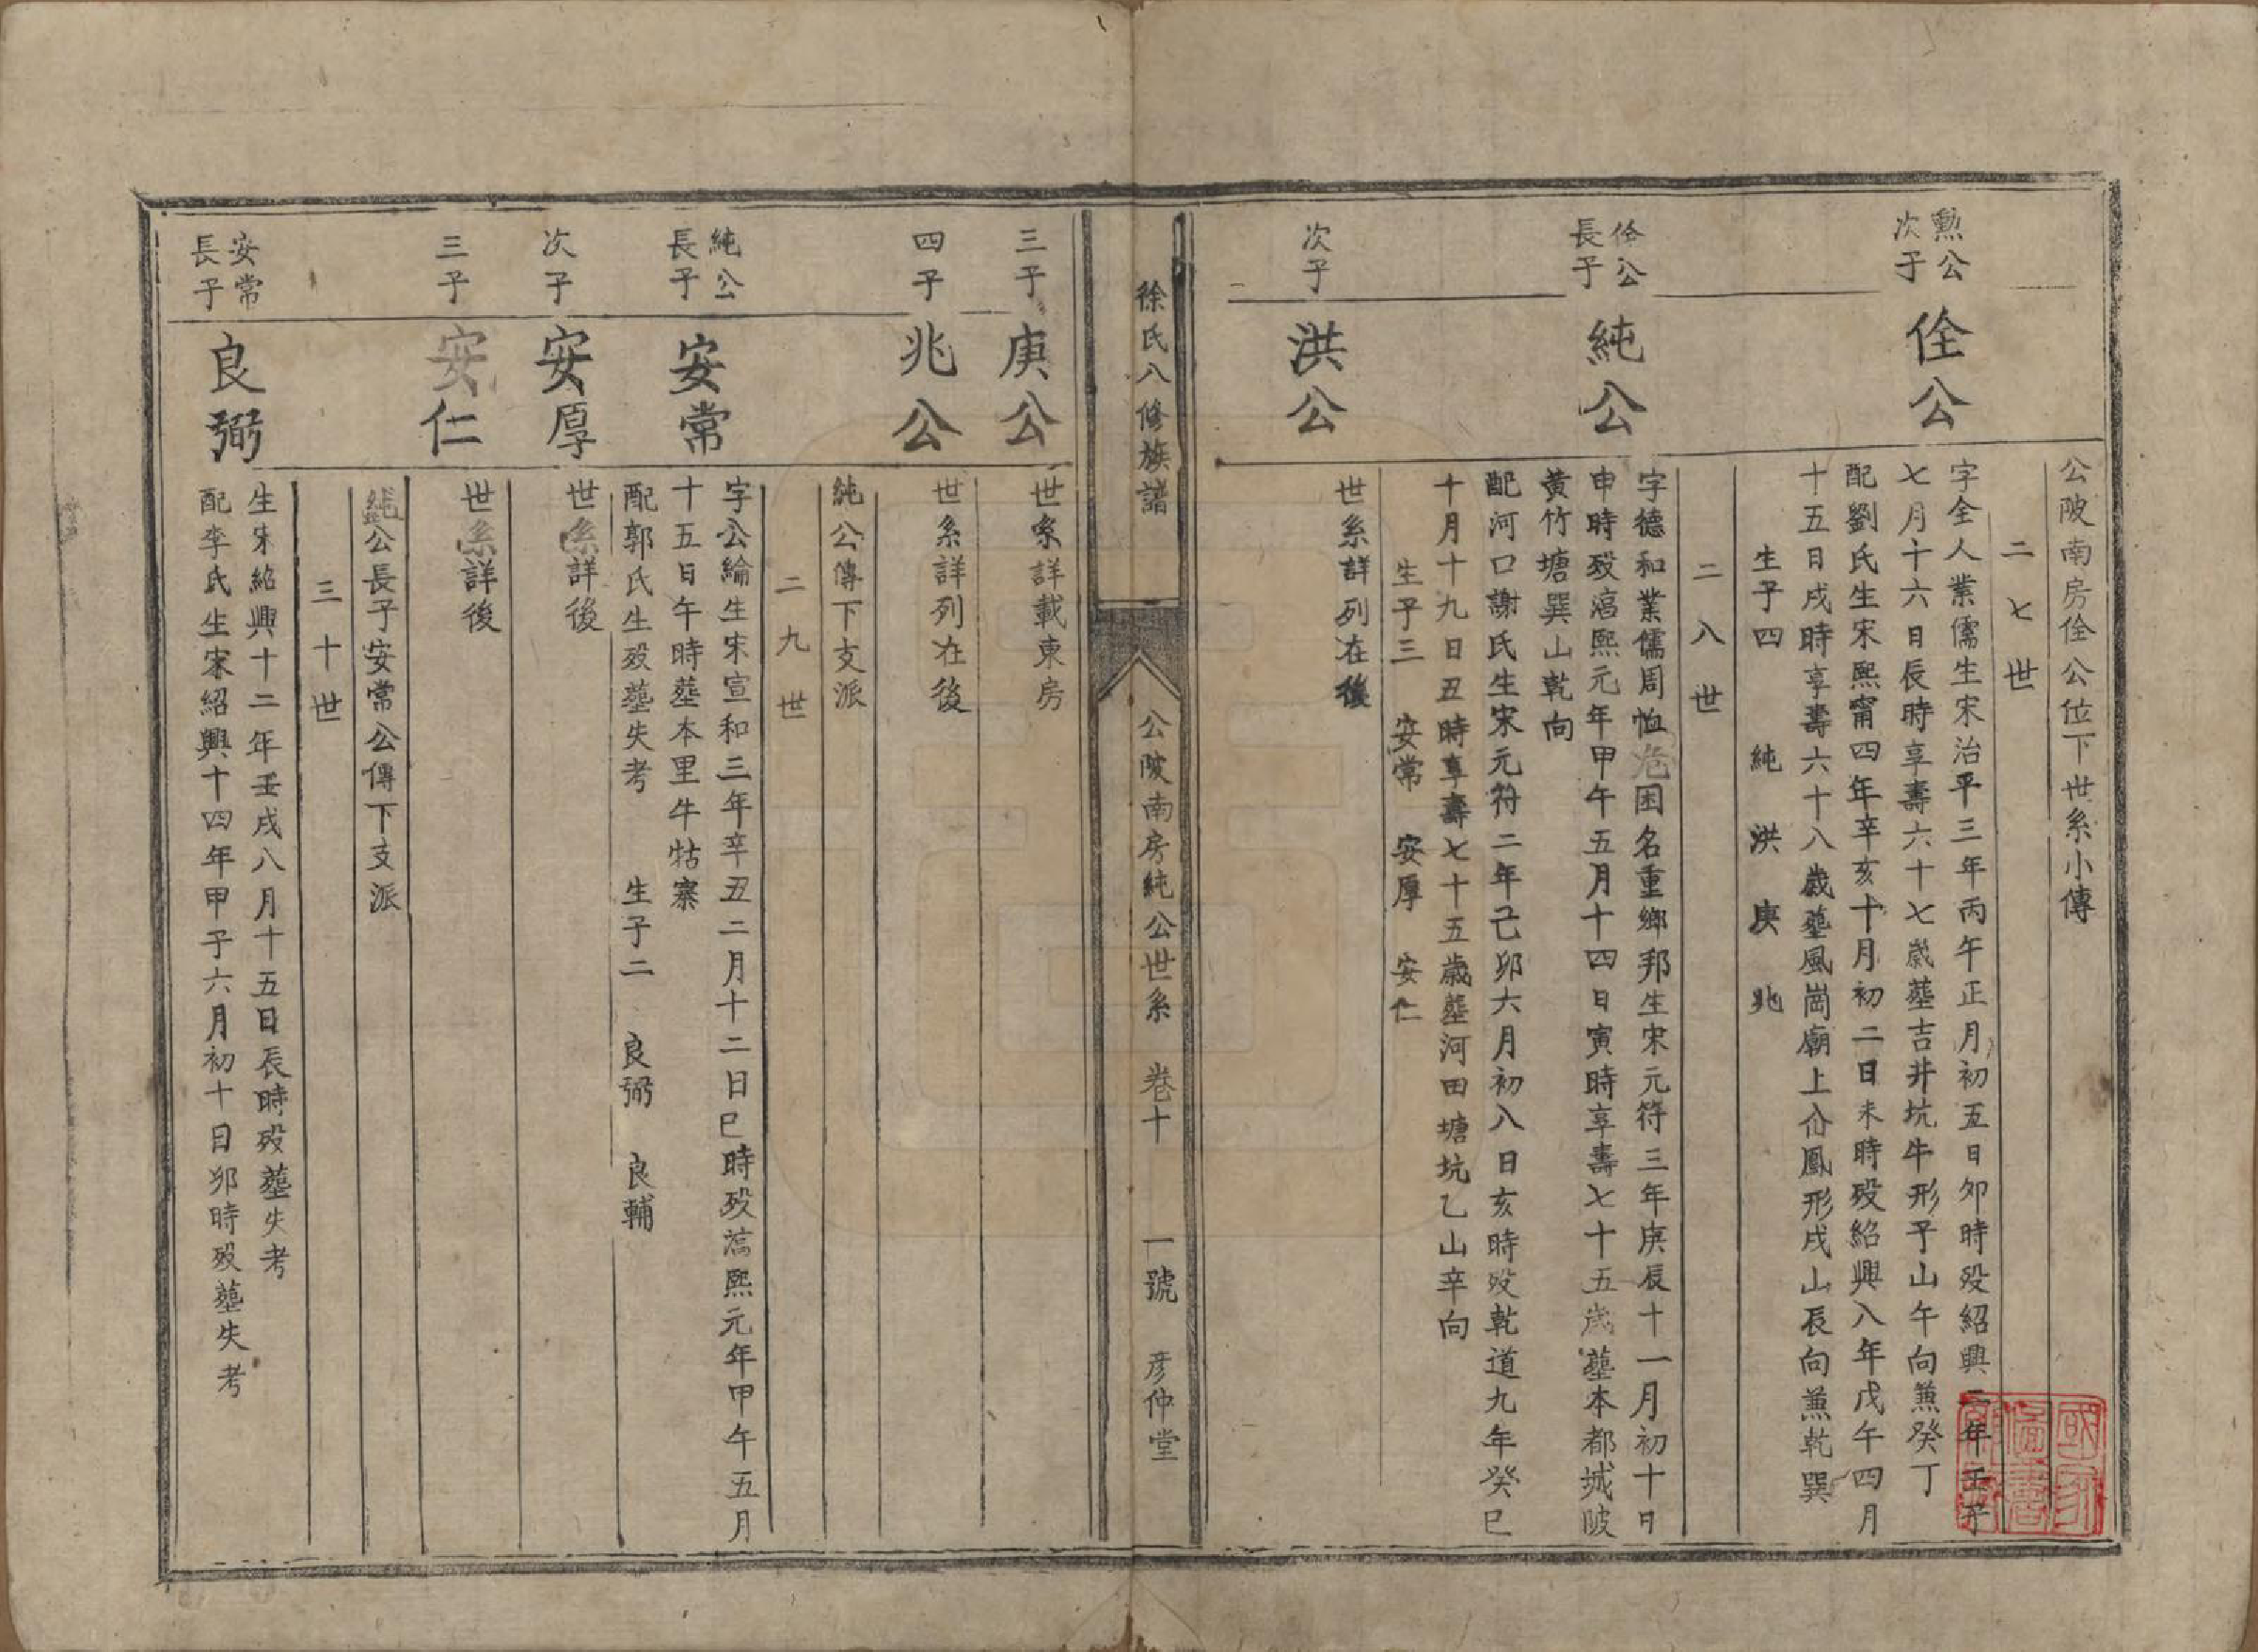 公陂南房佺公位下世系小傳
二七世
勲公
次子
佺公
字全人業儒生宋治平三年丙午正月初五日卯時殁紹興二年壬子
七月十六日辰時享壽六十七歲塟吉井坑牛形子山午向兼癸丁
配劉氏生宋熙甯四年辛亥十月初二日未時殁紹興八年戊午四月
十五日戌時享壽六十八歲塟風崗廟上仚鳳形戌山辰向兼乾巽
生子四 純 洪 庚 兆
二八世
佺公
長子
純公
字德和業儒周恤危困名重鄉邦生宋元符三年庚辰十一月初十日
申時殁淳熙元年甲午五月十四日寅時享壽七十五歲墓本都城陂
黄竹塘巽山乾向
配河口謝氏生宋元符二年己卯六月初八日亥時殁乾道九年癸巳
十月十九日丑時享壽七十五歲塟河田塘坑乙山辛向
生子三 安常 安厚 安仁
次子
洪公
世系詳列在後
徐氏八修族譜
公陂南房純公世系 卷十
一號 彦仲堂
三子
庚公
世系詳載東房
四子
兆公
世系詳列在後
純公傳下支派
二九世
純公
長子
安常
字公綸生宋宣和三年辛丑二月十二日巳時殁淳熙元年甲午五月
十五日午時塟本里牛牯寨
配郭氏生殁塟失考 生子二 良弼 良輔
次子
安厚
世系詳後
三子
安仁
世系詳後
純公長子安常公傳下支派
三十世
安常
長子
良弼
生宋紹興十二年壬戌八月十五日辰時殁墓失考
配李氏生宋紹興十四年甲子六月初十日卯時殁墓失考